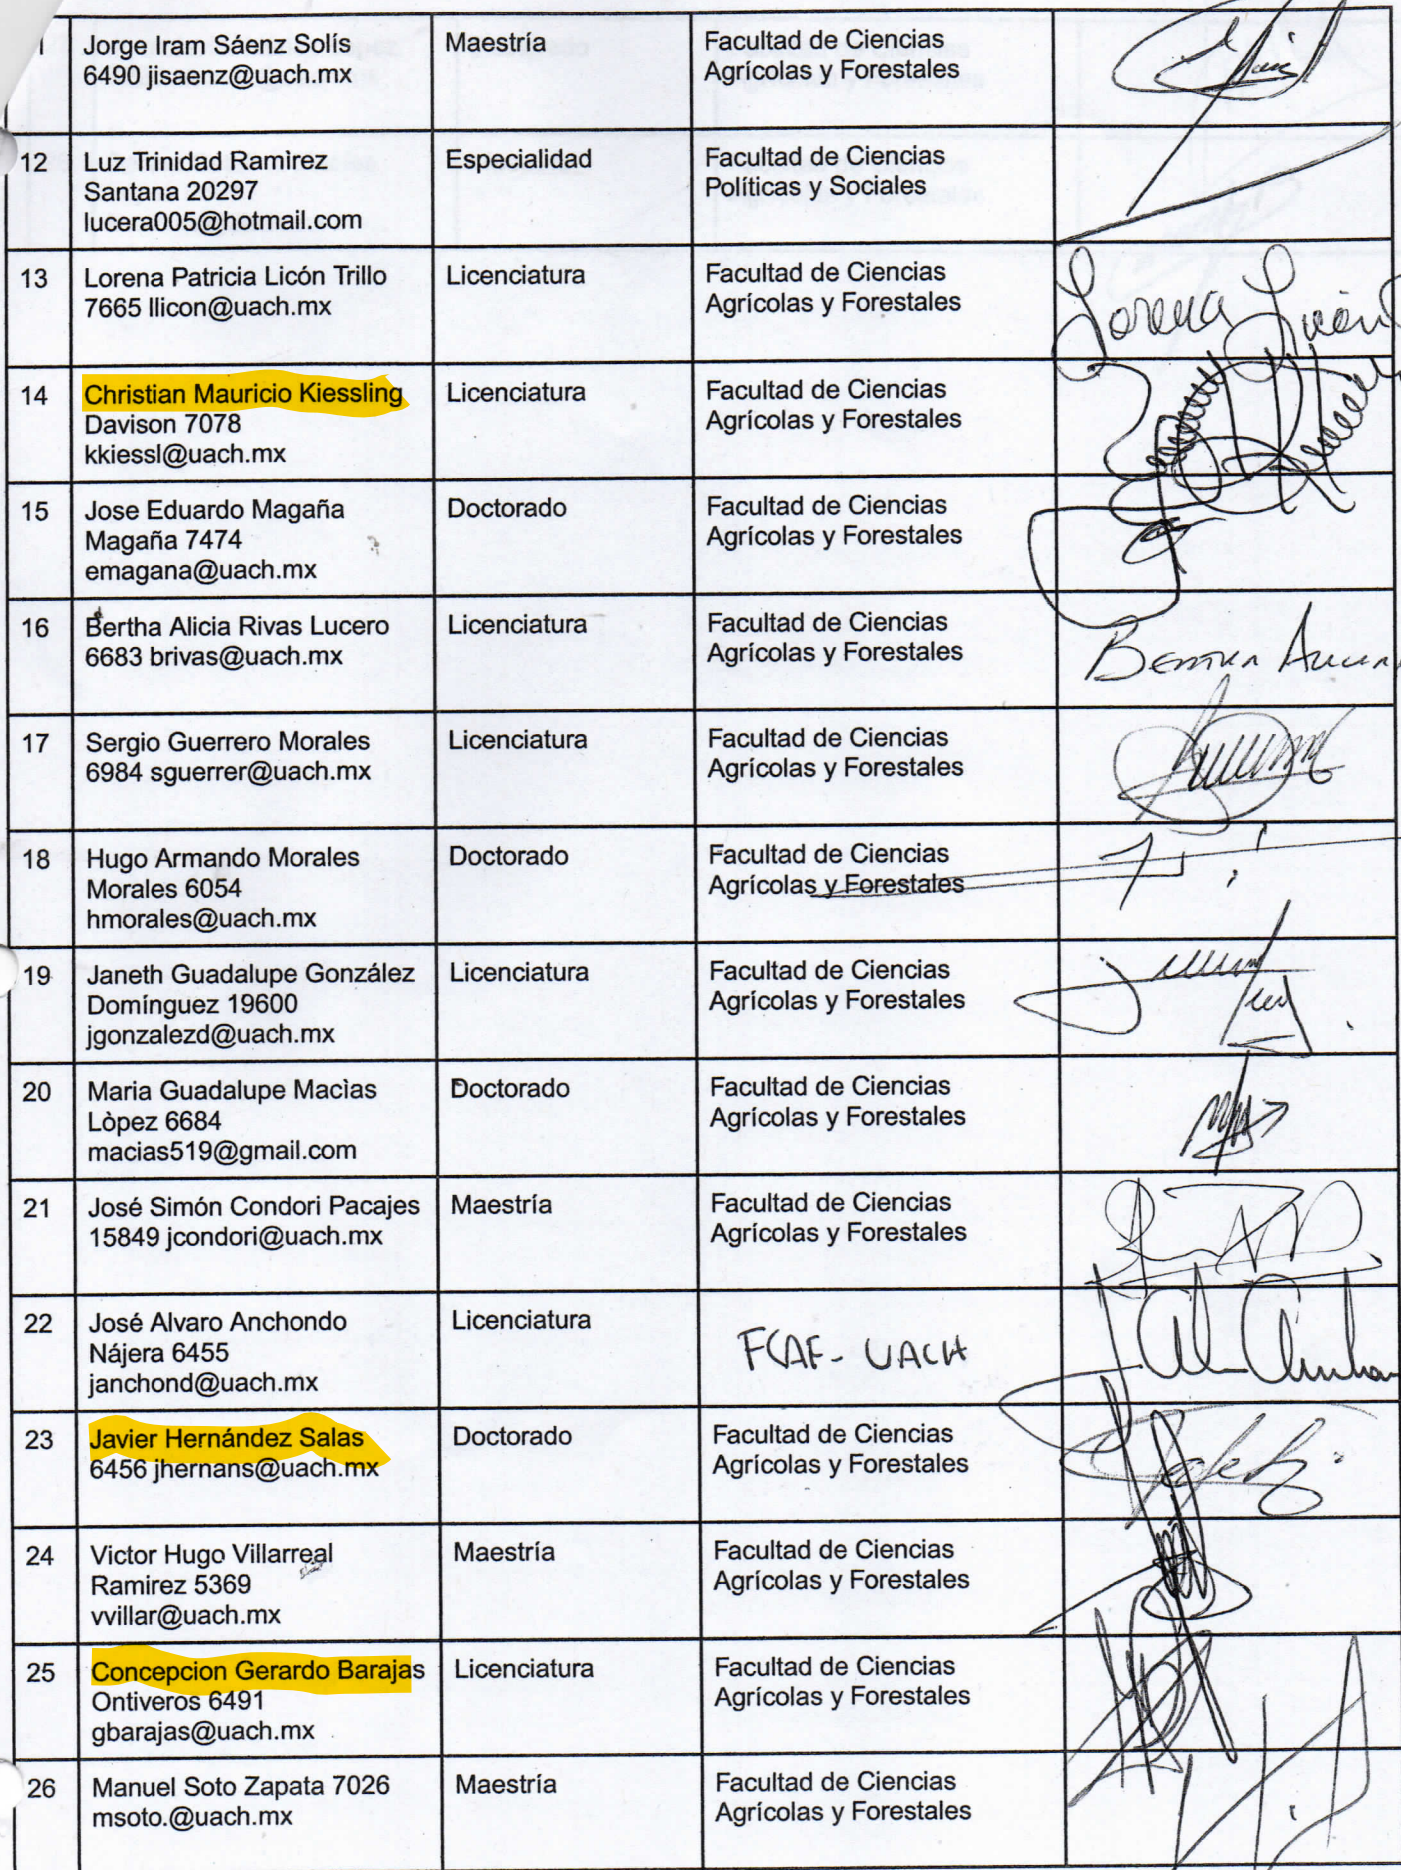 1 Jorge Iram Sáenz Solís
6490 jisaenz@uach.mx
Maestría
Facultad de Ciencias
Agrícolas y Forestales
12 Luz Trinidad Ramìrez
Santana 20297
lucera005@hotmail.com
Especialidad
Facultad de Ciencias
Políticas y Sociales
13 Lorena Patricia Licón Trillo
7665 llicon@uach.mx
Licenciatura
Facultad de Ciencias
Agrícolas y Forestales
Lorena Licón
14 Christian Mauricio Kiessling
Davison 7078
kkiessl@uach.mx
Licenciatura
Facultad de Ciencias
Agrícolas y Forestales
15 Jose Eduardo Magaña
Magaña 7474
emagana@uach.mx
Doctorado
Facultad de Ciencias
Agrícolas y Forestales
16 Bertha Alicia Rivas Lucero
6683 brivas@uach.mx
Licenciatura
Facultad de Ciencias
Agrícolas y Forestales
Bertha Alicia
17 Sergio Guerrero Morales
6984 sguerrer@uach.mx
Licenciatura
Facultad de Ciencias
Agrícolas y Forestales
18 Hugo Armando Morales
Morales 6054
hmorales@uach.mx
Doctorado
Facultad de Ciencias
Agrícolas y Forestales
19 Janeth Guadalupe González
Domínguez 19600
jgonzalezd@uach.mx
Licenciatura
Facultad de Ciencias
Agrícolas y Forestales
20 Maria Guadalupe Macìas
Lòpez 6684
macias519@gmail.com
Doctorado
Facultad de Ciencias
Agrícolas y Forestales
21 José Simón Condori Pacajes
15849 jcondori@uach.mx
Maestría
Facultad de Ciencias
Agrícolas y Forestales
22 José Alvaro Anchondo
Nájera 6455
janchond@uach.mx
Licenciatura
FCAF- UACH
23 Javier Hernández Salas
6456 jhernans@uach.mx
Doctorado
Facultad de Ciencias
Agrícolas y Forestales
24 Victor Hugo Villarreal
Ramirez 5369
vvillar@uach.mx
Maestría
Facultad de Ciencias
Agrícolas y Forestales
25 Concepcion Gerardo Barajas
Ontiveros 6491
gbarajas@uach.mx
Licenciatura
Facultad de Ciencias
Agrícolas y Forestales
26 Manuel Soto Zapata 7026
msoto.@uach.mx
Maestría
Facultad de Ciencias
Agrícolas y Forestales